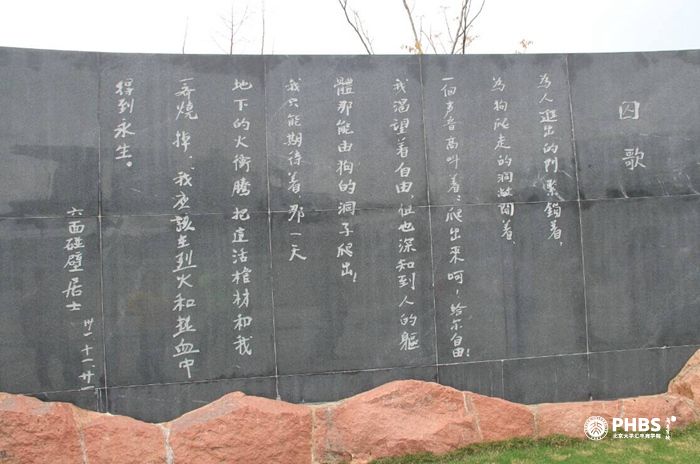 囚歌
为人進出的门緊鎖着，
为狗爬走的洞敞開着，
一個声音高叫着：爬出来呵，给尔自由！
我渴望着自由，但也深知到人的軀
體那能由狗的洞子爬出！
我只能期待着，那一天
地下的火衝騰，把這活棺材和我
一齊燒掉，我应該在烈火和热血中
得到永生。
六面碰壁居士
卅一·十一·廿一
PHBS
北京大学汇丰商学院